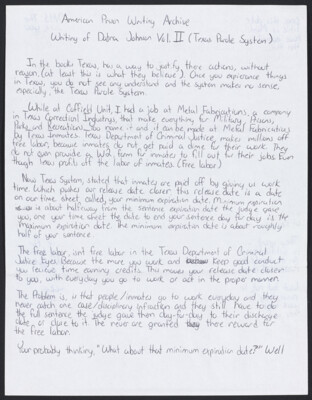 American Prison Writing Archive
Writing of Debra Johnson Vol. II (Texas Parole System)
In the books Texas, has a way to justify there actions, without
reason, (at least this is what they believe.) Once you experience things
in Texas, you do not see any understand and the system makes no sense,
especially, the Texas Parole System.
While at Coffield Unit, I had a job at Metal Fabrications, a company
in Texas Correctional Industries, that make everything for Military, Prisons,
Parks and Recreations. You name it and it can be made at Metal Fabrications
by Texas Inmates. Texas Department of Criminal Justice, makes millions off
free labor, because inmates do not, get paid a dime for their work. They
do not even provide a, W2A form for inmates to fill out for their jobs. Even
though Texas profits off the labor of inmates. (free labor)
Now Texas System, stated that inmates are paid off by giving us work
time. Which pushes our release date closer. This release date is a date
on our time sheet, called, your minimum expiration date. Minimum expiration
is about halfway from the sentence expiration date the judge gave
you, one your time sheet the date to end your sentence day for day is the
Maximum expiration date. The minimum expiration date is about roughly
half of your sentence.
The free labor, isnt free labor in the Texas Department of Criminal
Justice Eyes. Because the more you work and keep good conduct
you receive time earning credits. This moves your release date closer
to you, with everyday you go to work or act in the proper manner.
The Problem is, is that people/inmates go to work everyday and they
never catch one case/disciplinary infraction and they still have to do
the full sentence the judge gave them day-for-day to their discharge
date, or close to it. The never are granted there reward for
the free labor.
Your probably thinking, "What about that minimum expiration date?" Well